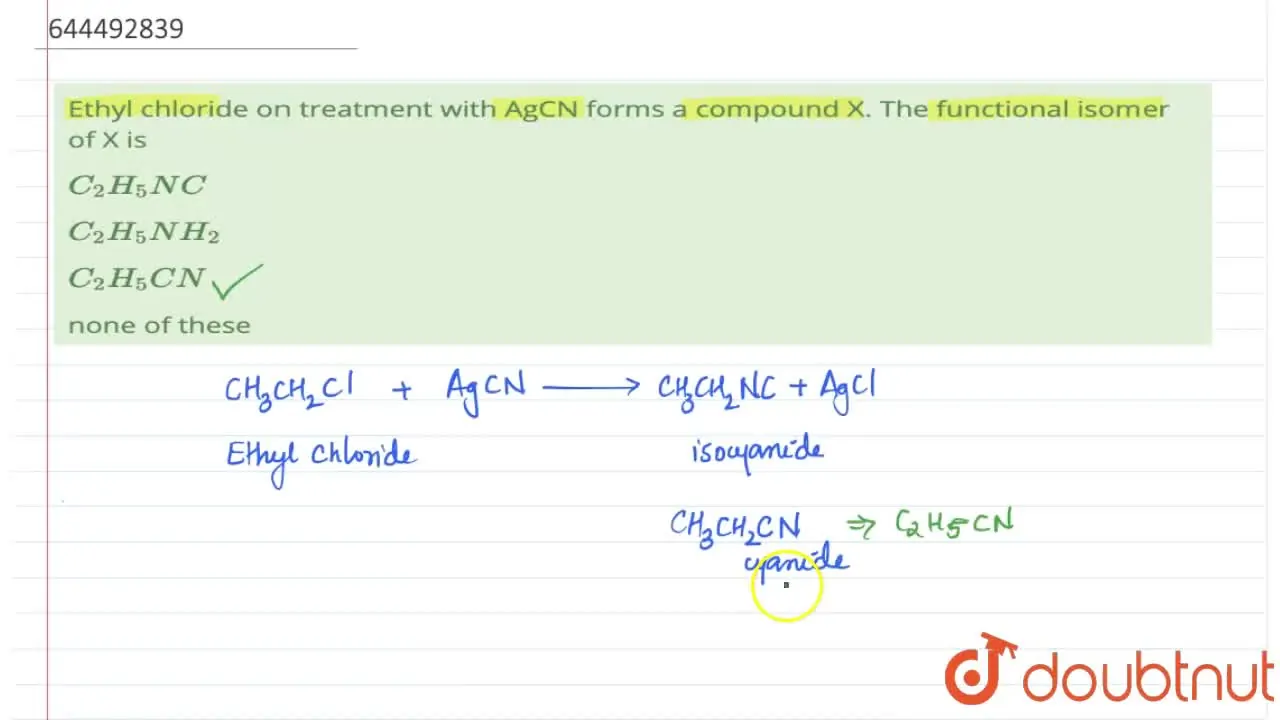 644492839
Ethyl chloride on treatment with AgCN forms a compound X. The functional isomer
of X is
C₂H₅NC
C₂H₅NH₂
C₂H₅CN ✓
none of these
CH₃CH₂Cl + AgCN ⟶ CH₃CH₂NC + AgCl
Ethyl Chloride isocyanide
CH₃CH₂CN ⇒ C₂H₅CN
cyanide
doubtnut